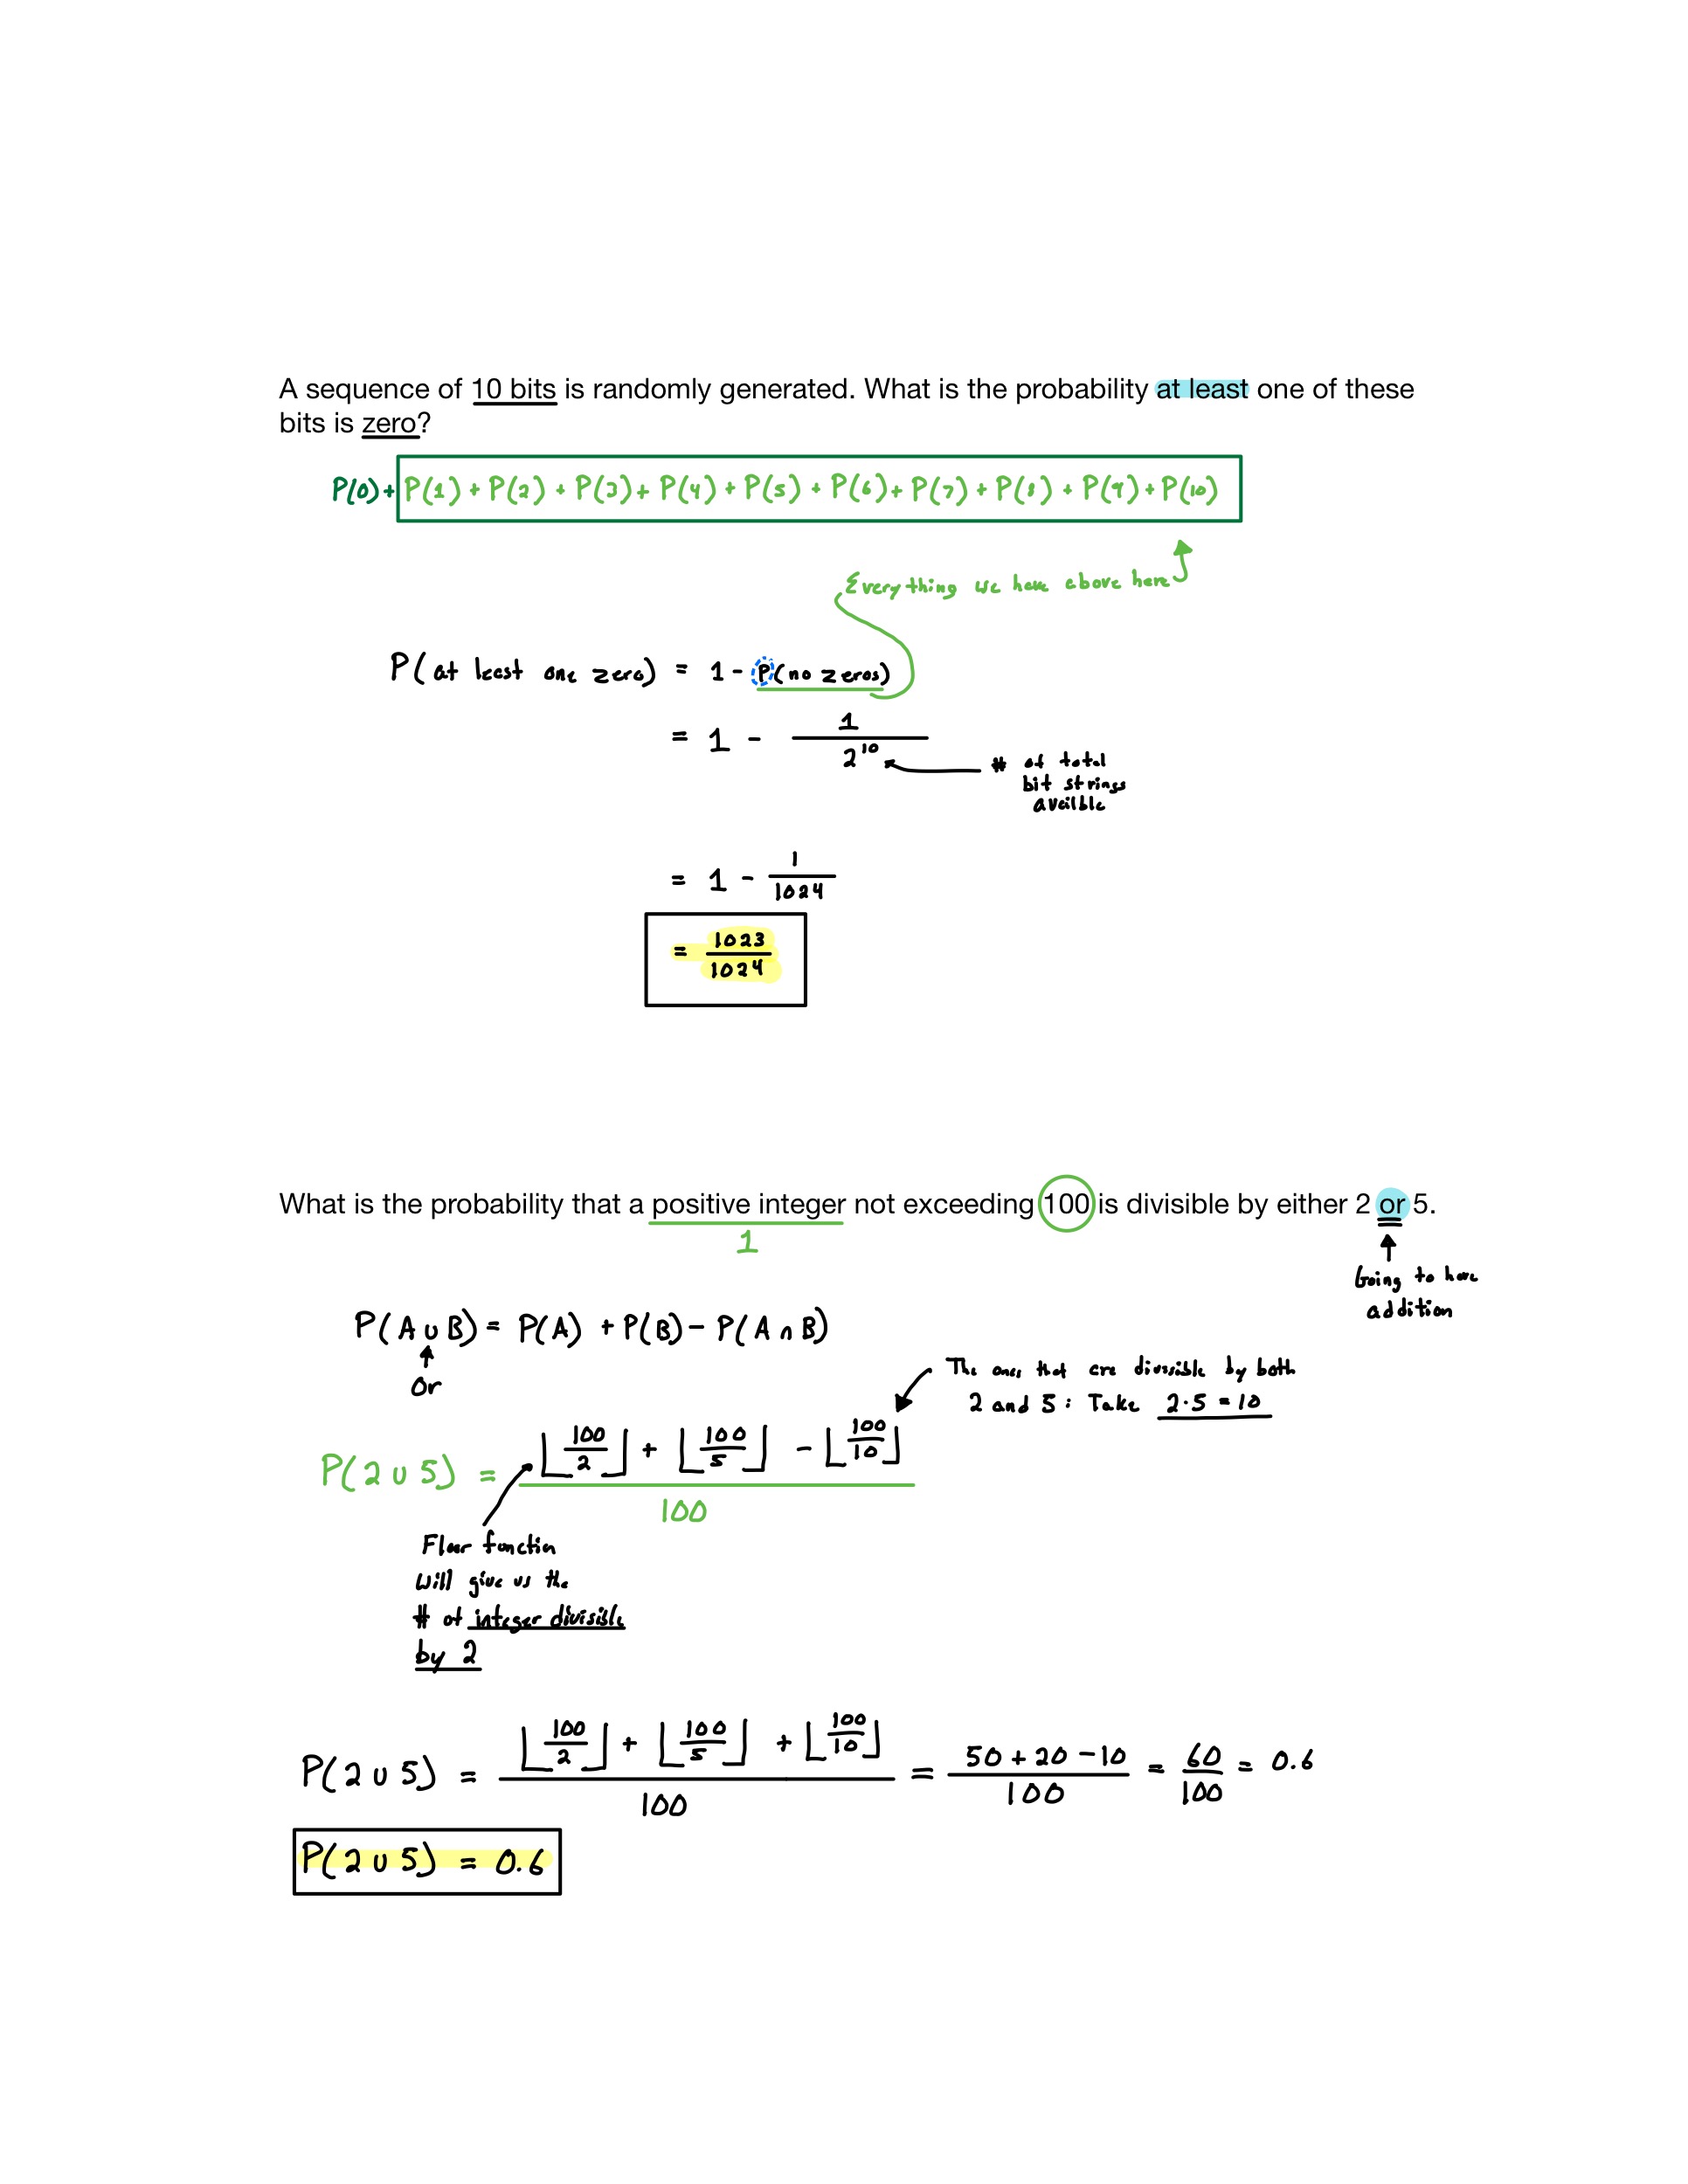 A sequence of 10 bits is randomly generated. What is the probability at least one of these
bits is zero?
P(0) + P(1) + P(2) + P(3) + P(4) + P(5) + P(6) + P(7) + P(8) + P(9) + P(10)
Everything we have above here
P(at least one zero) = 1 - P(no zeros)
= 1 - 1/2^10
# of total
bit strings
availble
= 1 - 1/1024
= 1023/1024
What is the probability that a positive integer not exceeding 100 is divisible by either 2 or 5.
1
Going to have
addition
P(A ∪ B) = P(A) + P(B) - P(A ∩ B)
or
The ones that are divisible by both
2 and 5: Take 2·5 = 10
P(2 ∪ 5) = (⌊100/2⌋ + ⌊100/5⌋ - ⌊100/10⌋)/100
Floor function
will give us the
# of integer divisible
by 2
P(2 ∪ 5) = (⌊100/2⌋ + ⌊100/5⌋ + ⌊100/10⌋)/100 = (50 + 20 - 10)/100 = 60/100 = 0.6
P(2 ∪ 5) = 0.6